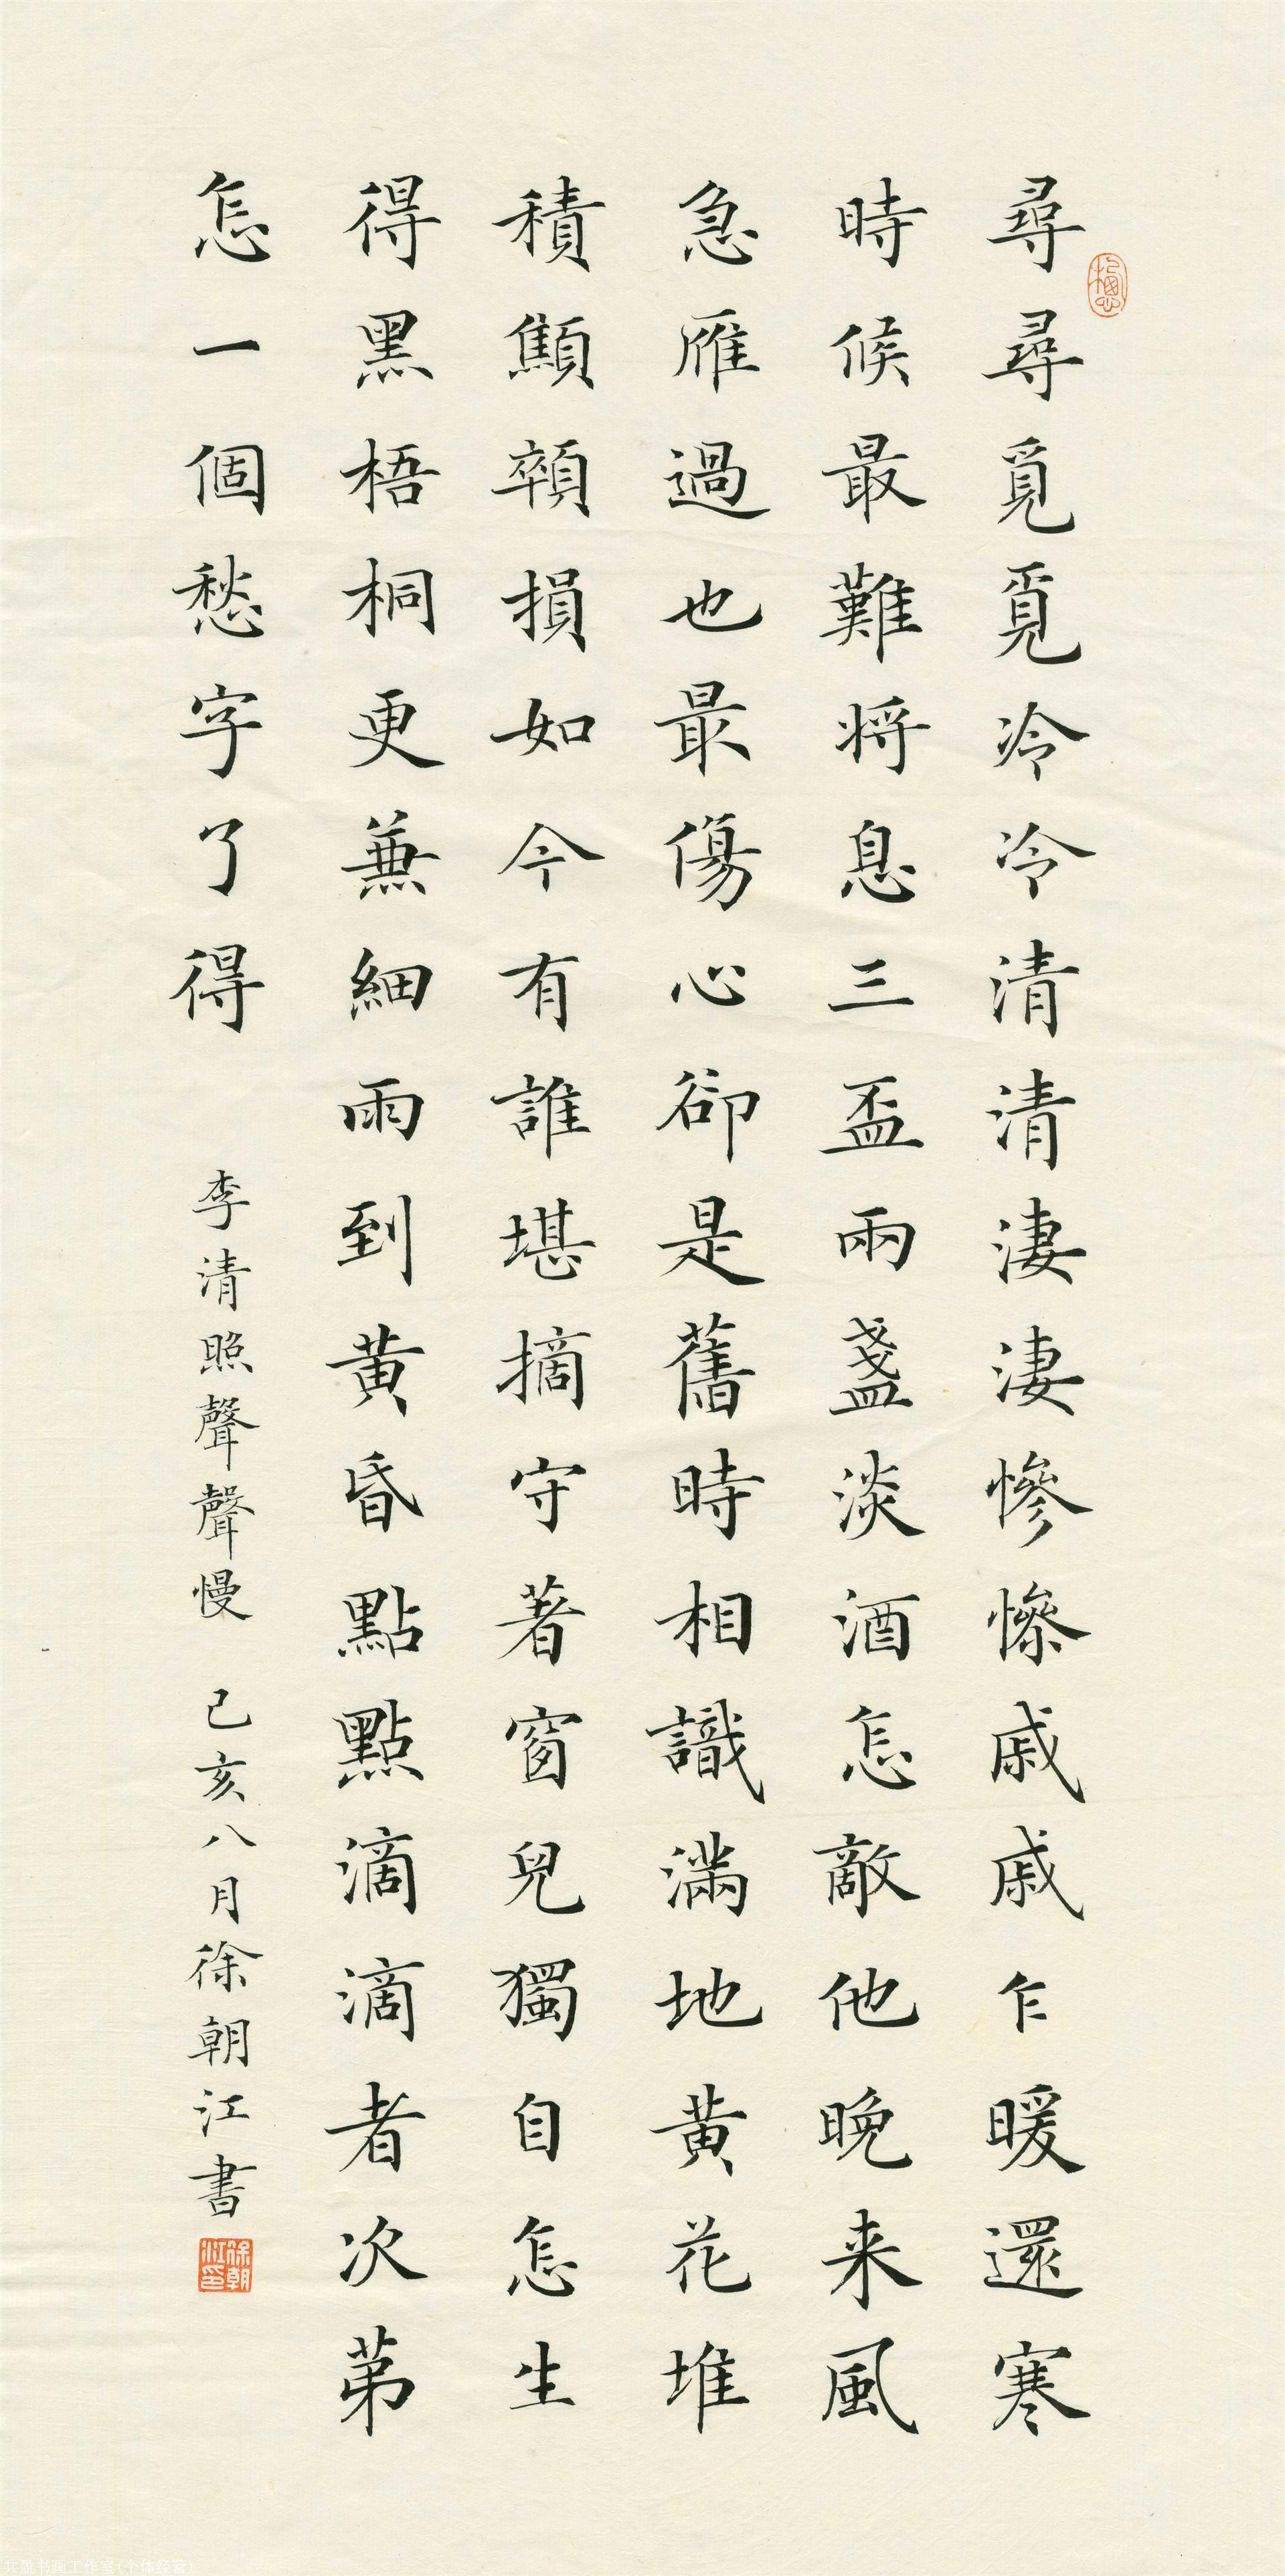 尋尋覓覓冷冷清清淒淒慘慘戚戚乍暖還寒
時候最難將息三盃兩盞淡酒怎敵他晚来風
急雁過也最傷心卻是舊時相識滿地黃花堆
積顦顇損如今有誰堪摘守著窗兒獨自怎生
得黑梧桐更兼細雨到黃昏點點滴滴者次第
怎一個愁字了得
李清照聲聲慢
己亥八月徐朝江書
徐朝江印